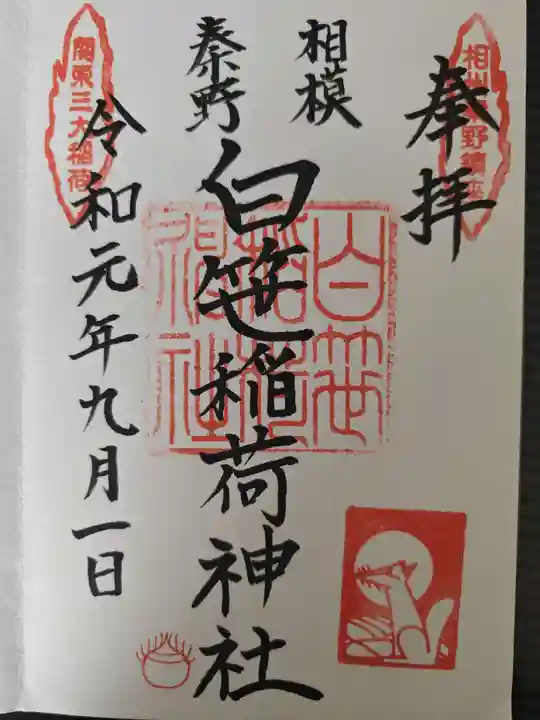 相州秦野鎮座
奉拝
相模
秦野
白笹稲荷神社
白笹
稲荷
神社
関東三大稲荷
令和元年九月一日